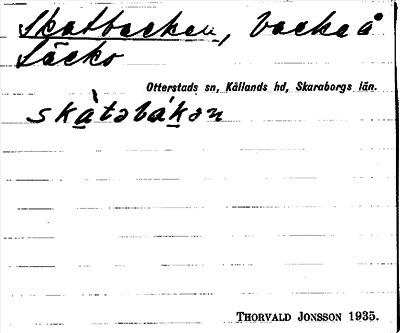 Skatbacken, backe å
Läckö
Otterstads sn, Kållands hd, Skaraborgs län.
skàtəbákən
THORVALD JONSSON 1935.